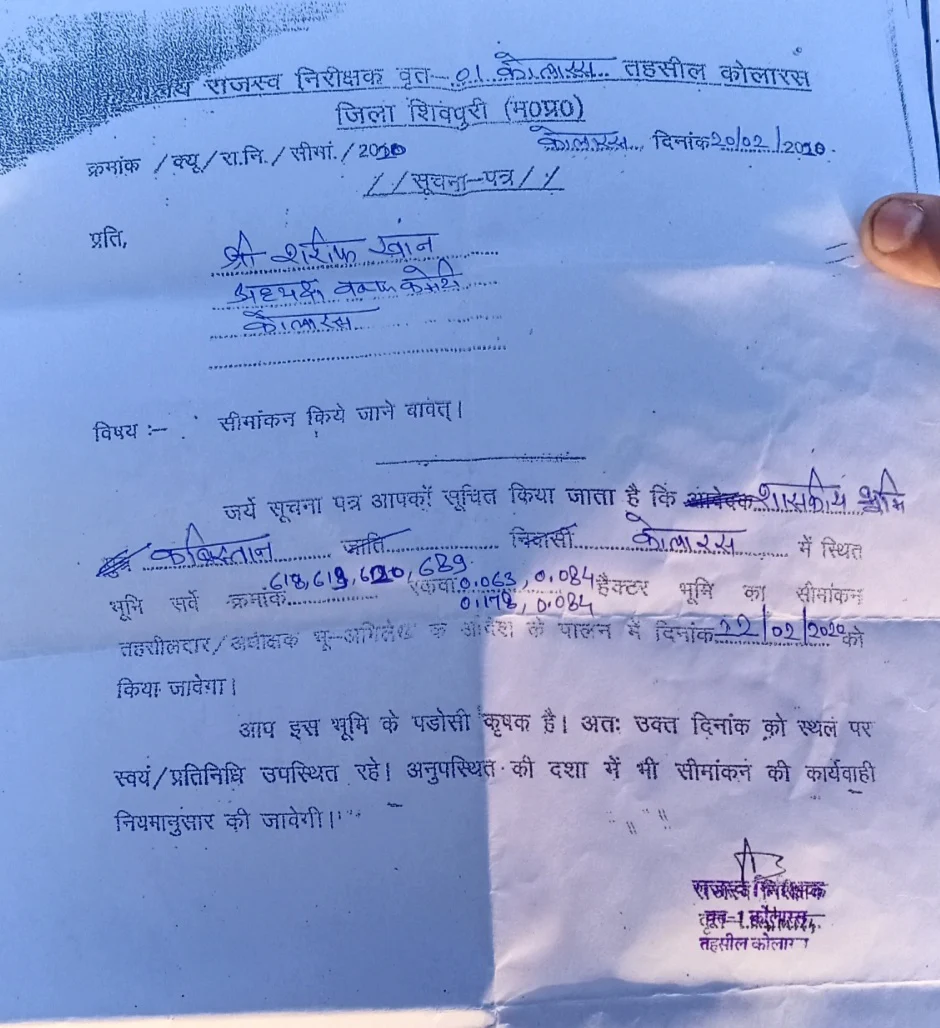 राजस्व निरीक्षक वृत-01 कोलारस तहसील कोलारस
जिला शिवपुरी (म0प्र0)
क्रमांक /क्यू/रा.नि./सीमां./2020
कोलारस, दिनांक 20/02/2020.
//सूचना-पत्र//
प्रति,
श्री शरीफ खांन
अध्यक्ष वक्फ कमेटी
कोलारस
विषय :- सीमांकन किये जाने वावत्।
जर्ये सूचना पत्र आपकों सूचित किया जाता है कि आवेदक शासकीय भूमि
कब्रिस्तान जाति निवासी कोलारस में स्थित
भूमि सर्वे क्रमांक 618, 619, 620, 689 रकवा 0.063, 0.084 हैक्टर भूमि का सीमांकन
0.178, 0.084
तहसीलदार/अधीक्षक भू-अभिलेख के आदेश के पालन में दिनांक 22/02/2020 को
किया जावेगा।
आप इस भूमि के पडोसी कृषक है। अतः उक्त दिनांक को स्थल पर
स्वयं/प्रतिनिधि उपस्थित रहे। अनुपस्थित की दशा में भी सीमांकन की कार्यवाही
नियमानुसार की जावेगी।
राजस्व निरीक्षक
वृत-1 कोलारस
तहसील कोलारस